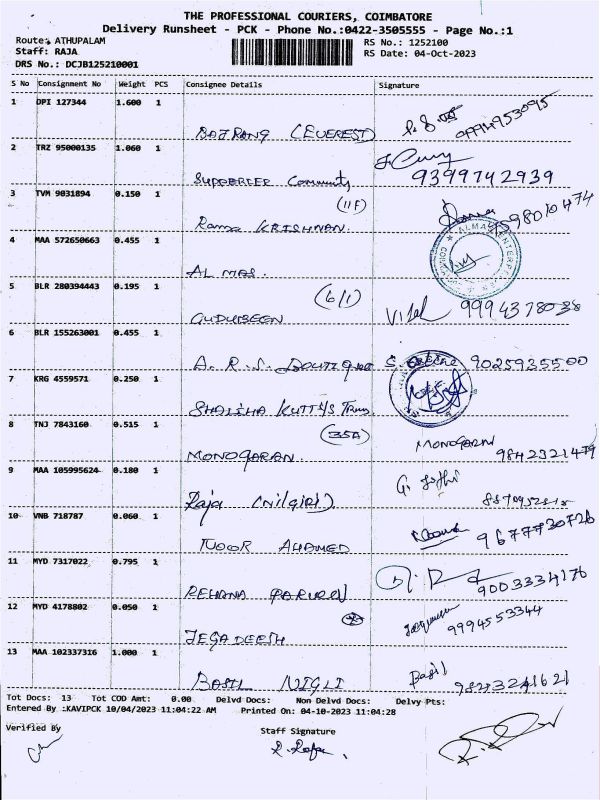 THE PROFESSIONAL COURIERS, COIMBATORE
Delivery Runsheet - PCK - Phone No.:0422-3505555 - Page No.:1
Route: ATHUPALAM RS No.: 1252100
Staff: RAJA RS Date: 04-Oct-2023
DRS No.: DCJB125210001
S No Consignment No Weight PCS Consignee Details Signature
1 DPI 127344 1.600 1
BAJRANG (EVEREST)
2 TRZ 95000135 1.060 1
Community 9399742939
3 TVM 9031894 0.150 1 (11F)
Rama KRISHNAN.
4 MAA 572650663 0.455 1
AL MAS.
5 BLR 280394443 0.195 1 (6/1)
9994378038
6 BLR 155263001 0.455 1
A. R. S. 9025935500
7 KRG 4559571 0.250 1
8 TNJ 7843160 0.515 1 (35A)
MONOGARAN. 9842321479
9 MAA 105995624 0.180 1
Raja (Nilgiri)
10 VNB 718787 0.060 1
NOOR AHAMED 9677730726
11 MYD 7317022 0.795 1
REHANA 9003334176
12 MYD 4178802 0.050 1
JEGADEESH 9994553344
13 MAA 102337316 1.000 1 Basil
BASIL
Tot Docs: 13 Tot COD Amt: 0.00 Delvd Docs: Non Delvd Docs: Delvy Pts:
Entered By :KAVIPCK 10/04/2023 11:04:22 AM Printed On: 04-10-2023 11:04:28
Verified By Staff Signature
R. Raja